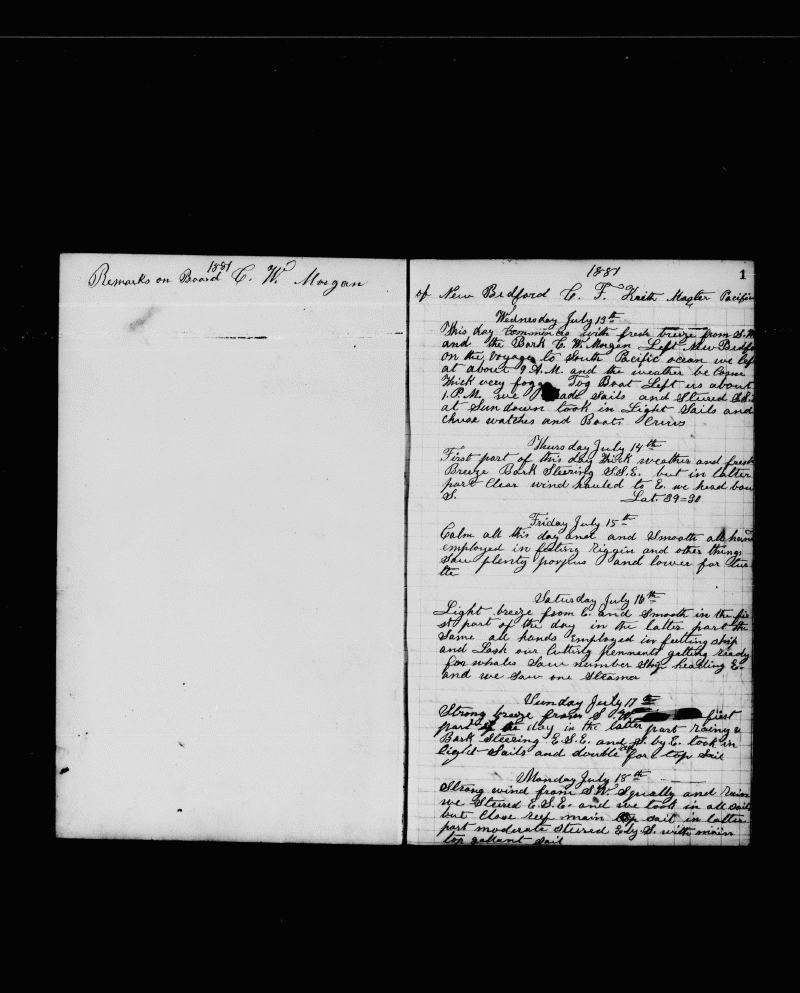 1881
Remarks on Board C. W. Morgan
1881
1
of New Bedford C. F. Keith Master Pacific
Wednesday July 13th
This day Commences with fresh breeze from S.W
and the Bark C. W. Morgan Left New Bedfo
on the voyage to South Pacific ocean we lef
at about 9 A.M. and the weather be Come
thick very foggy Tog Boat Left us about
1. P.M. we made Sails and Steured S.S.
at Sun down took in Light Sails and
chuse watches and Boats Crius
Thursday July 14th
First part of this day thick weather and fresh
Breeze Bark Steering S.S.E. but in latter
part Clear wind hauled to E. we head bou
S. Lat. 39=30
Friday July 15th
Calm all this day and and Smooth all hand
employed in fitting riggin and other things
Saw plenty porpus and lower for Tur
tle
Saturday July 16th
Light breeze from E. and Smooth in the fir
st part of the day in the latter part the
Same all hands employed in fitting ship
and Lash our Cutting pennents getting ready
for whales Saw number Ship heading E.
and we Saw one Steamer
Sunday July 17th
Strong breeze from S.W first
part of the day in the latter part rainy &
Bark Steering E.S.E. and S. by E. took in
light Sails and double for top Sail
Monday July 18th
Strong wind from S.W. Squally and rain
we Steured E.S.E. and we took in all Sails
but Close reef main top sail in latter
part moderate Steured E by S. with main
top gallant Sail